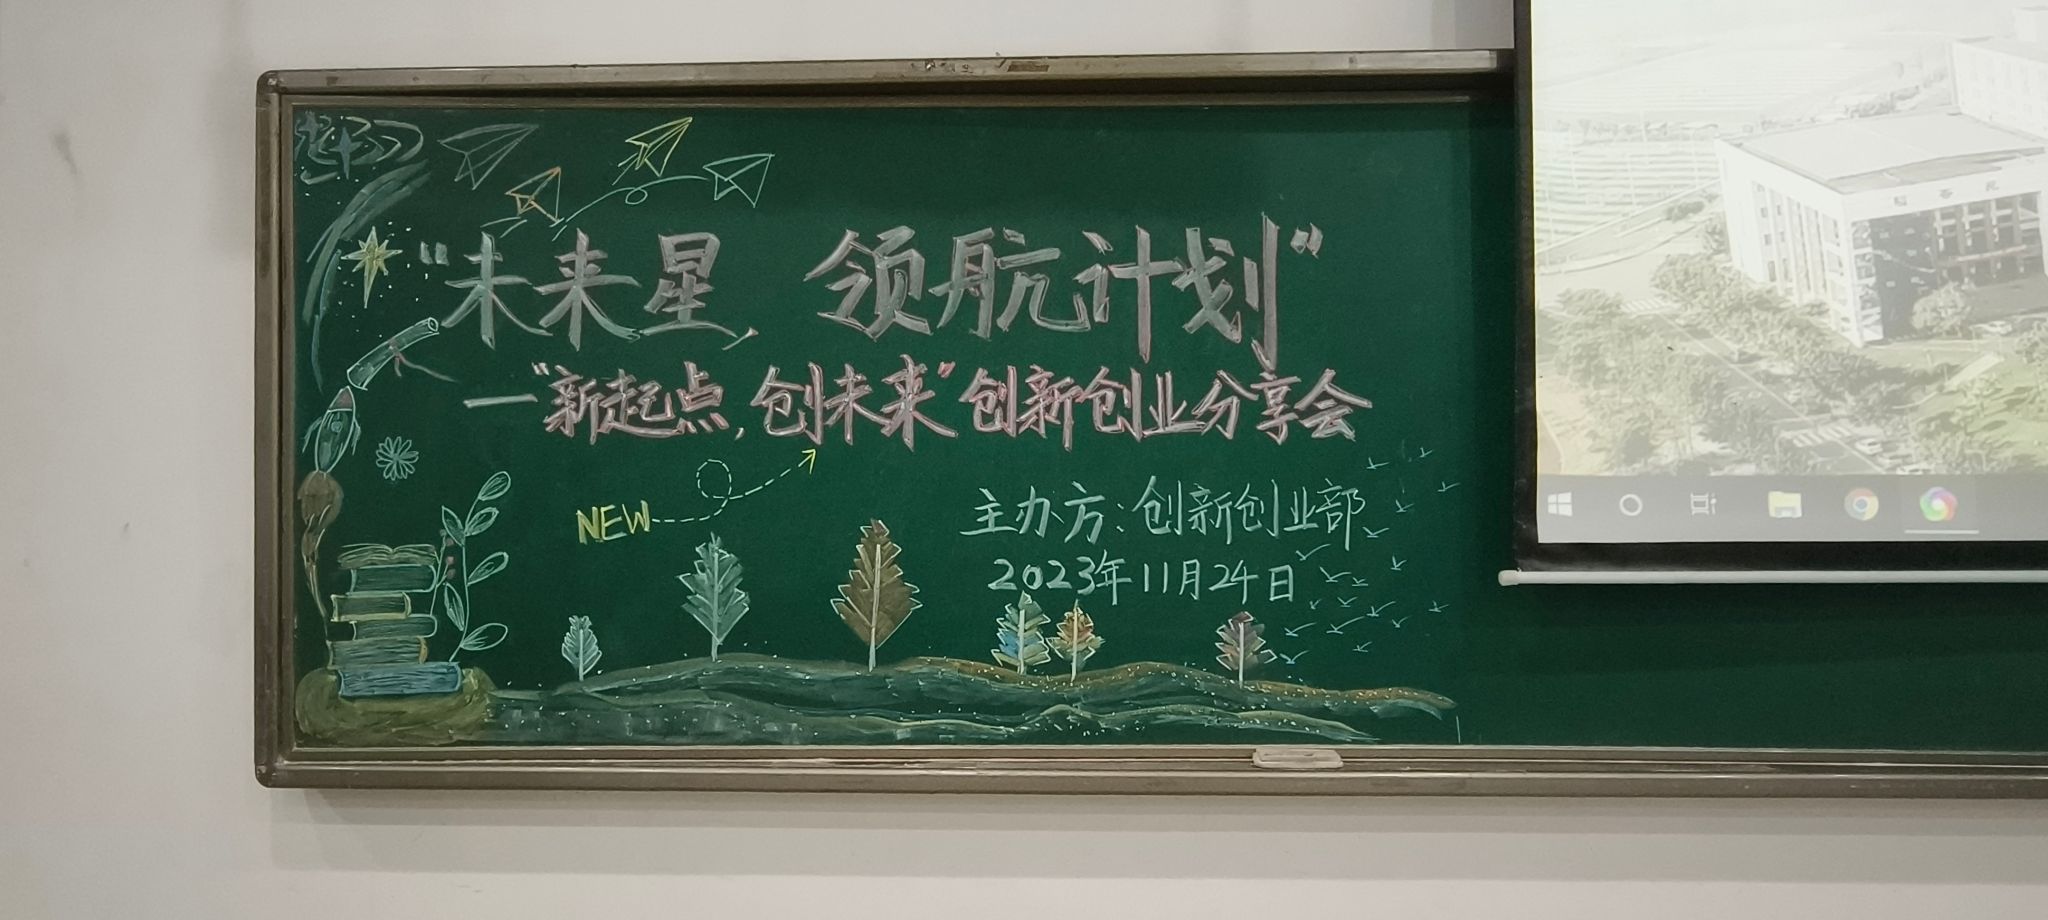 “未来星，领航计划”
—“新起点，创未来”创新创业分享会
NEW
主办方：创新创业部
2023年11月24日